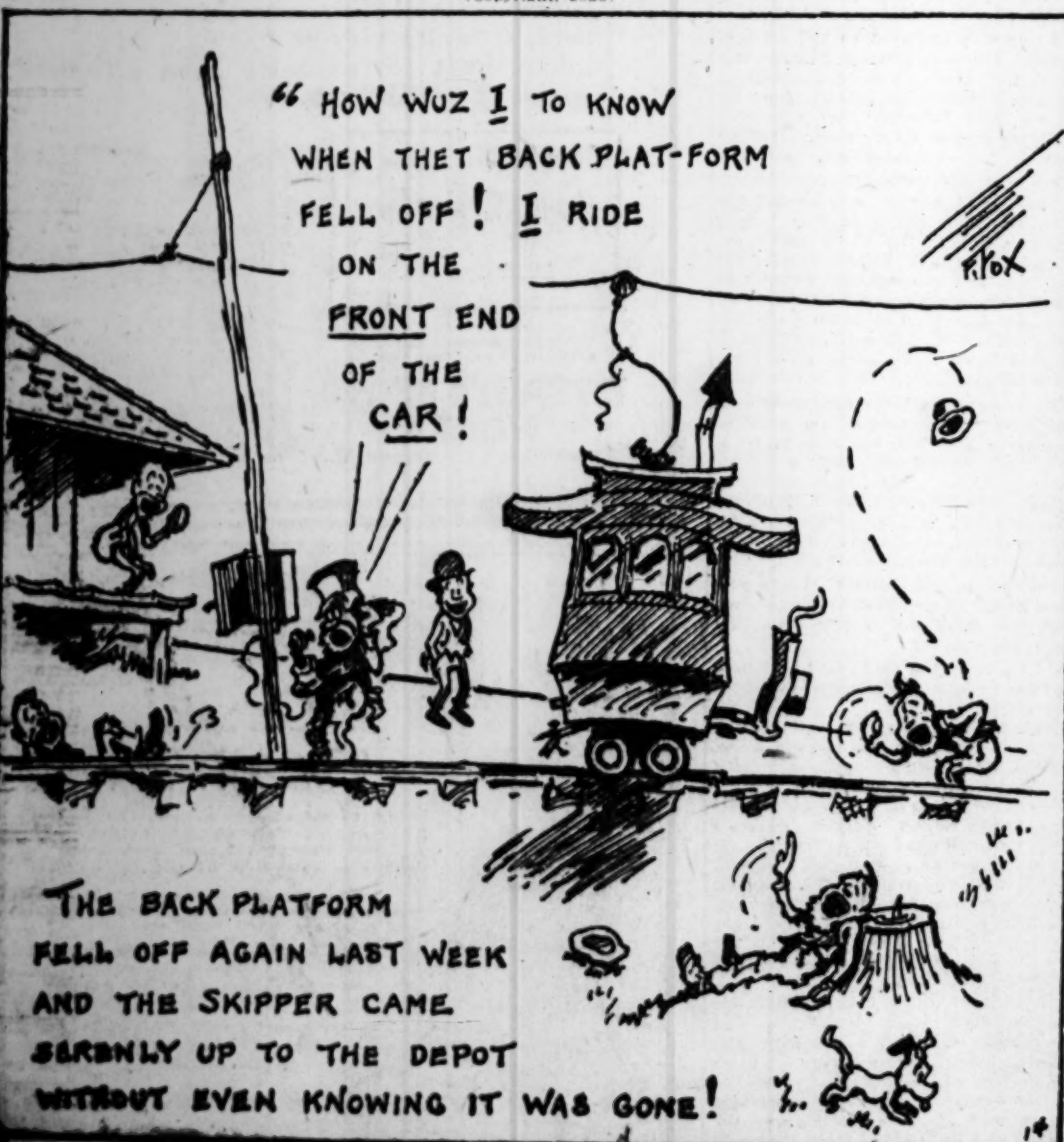 “ HOW WUZ I TO KNOW
WHEN THET BACK PLAT-FORM
FELL OFF! I RIDE
ON THE
FRONT END
OF THE
CAR!
THE BACK PLATFORM
FELL OFF AGAIN LAST WEEK
AND THE SKIPPER CAME
SERENLY UP TO THE DEPOT
WITHOUT EVEN KNOWING IT WAS GONE!